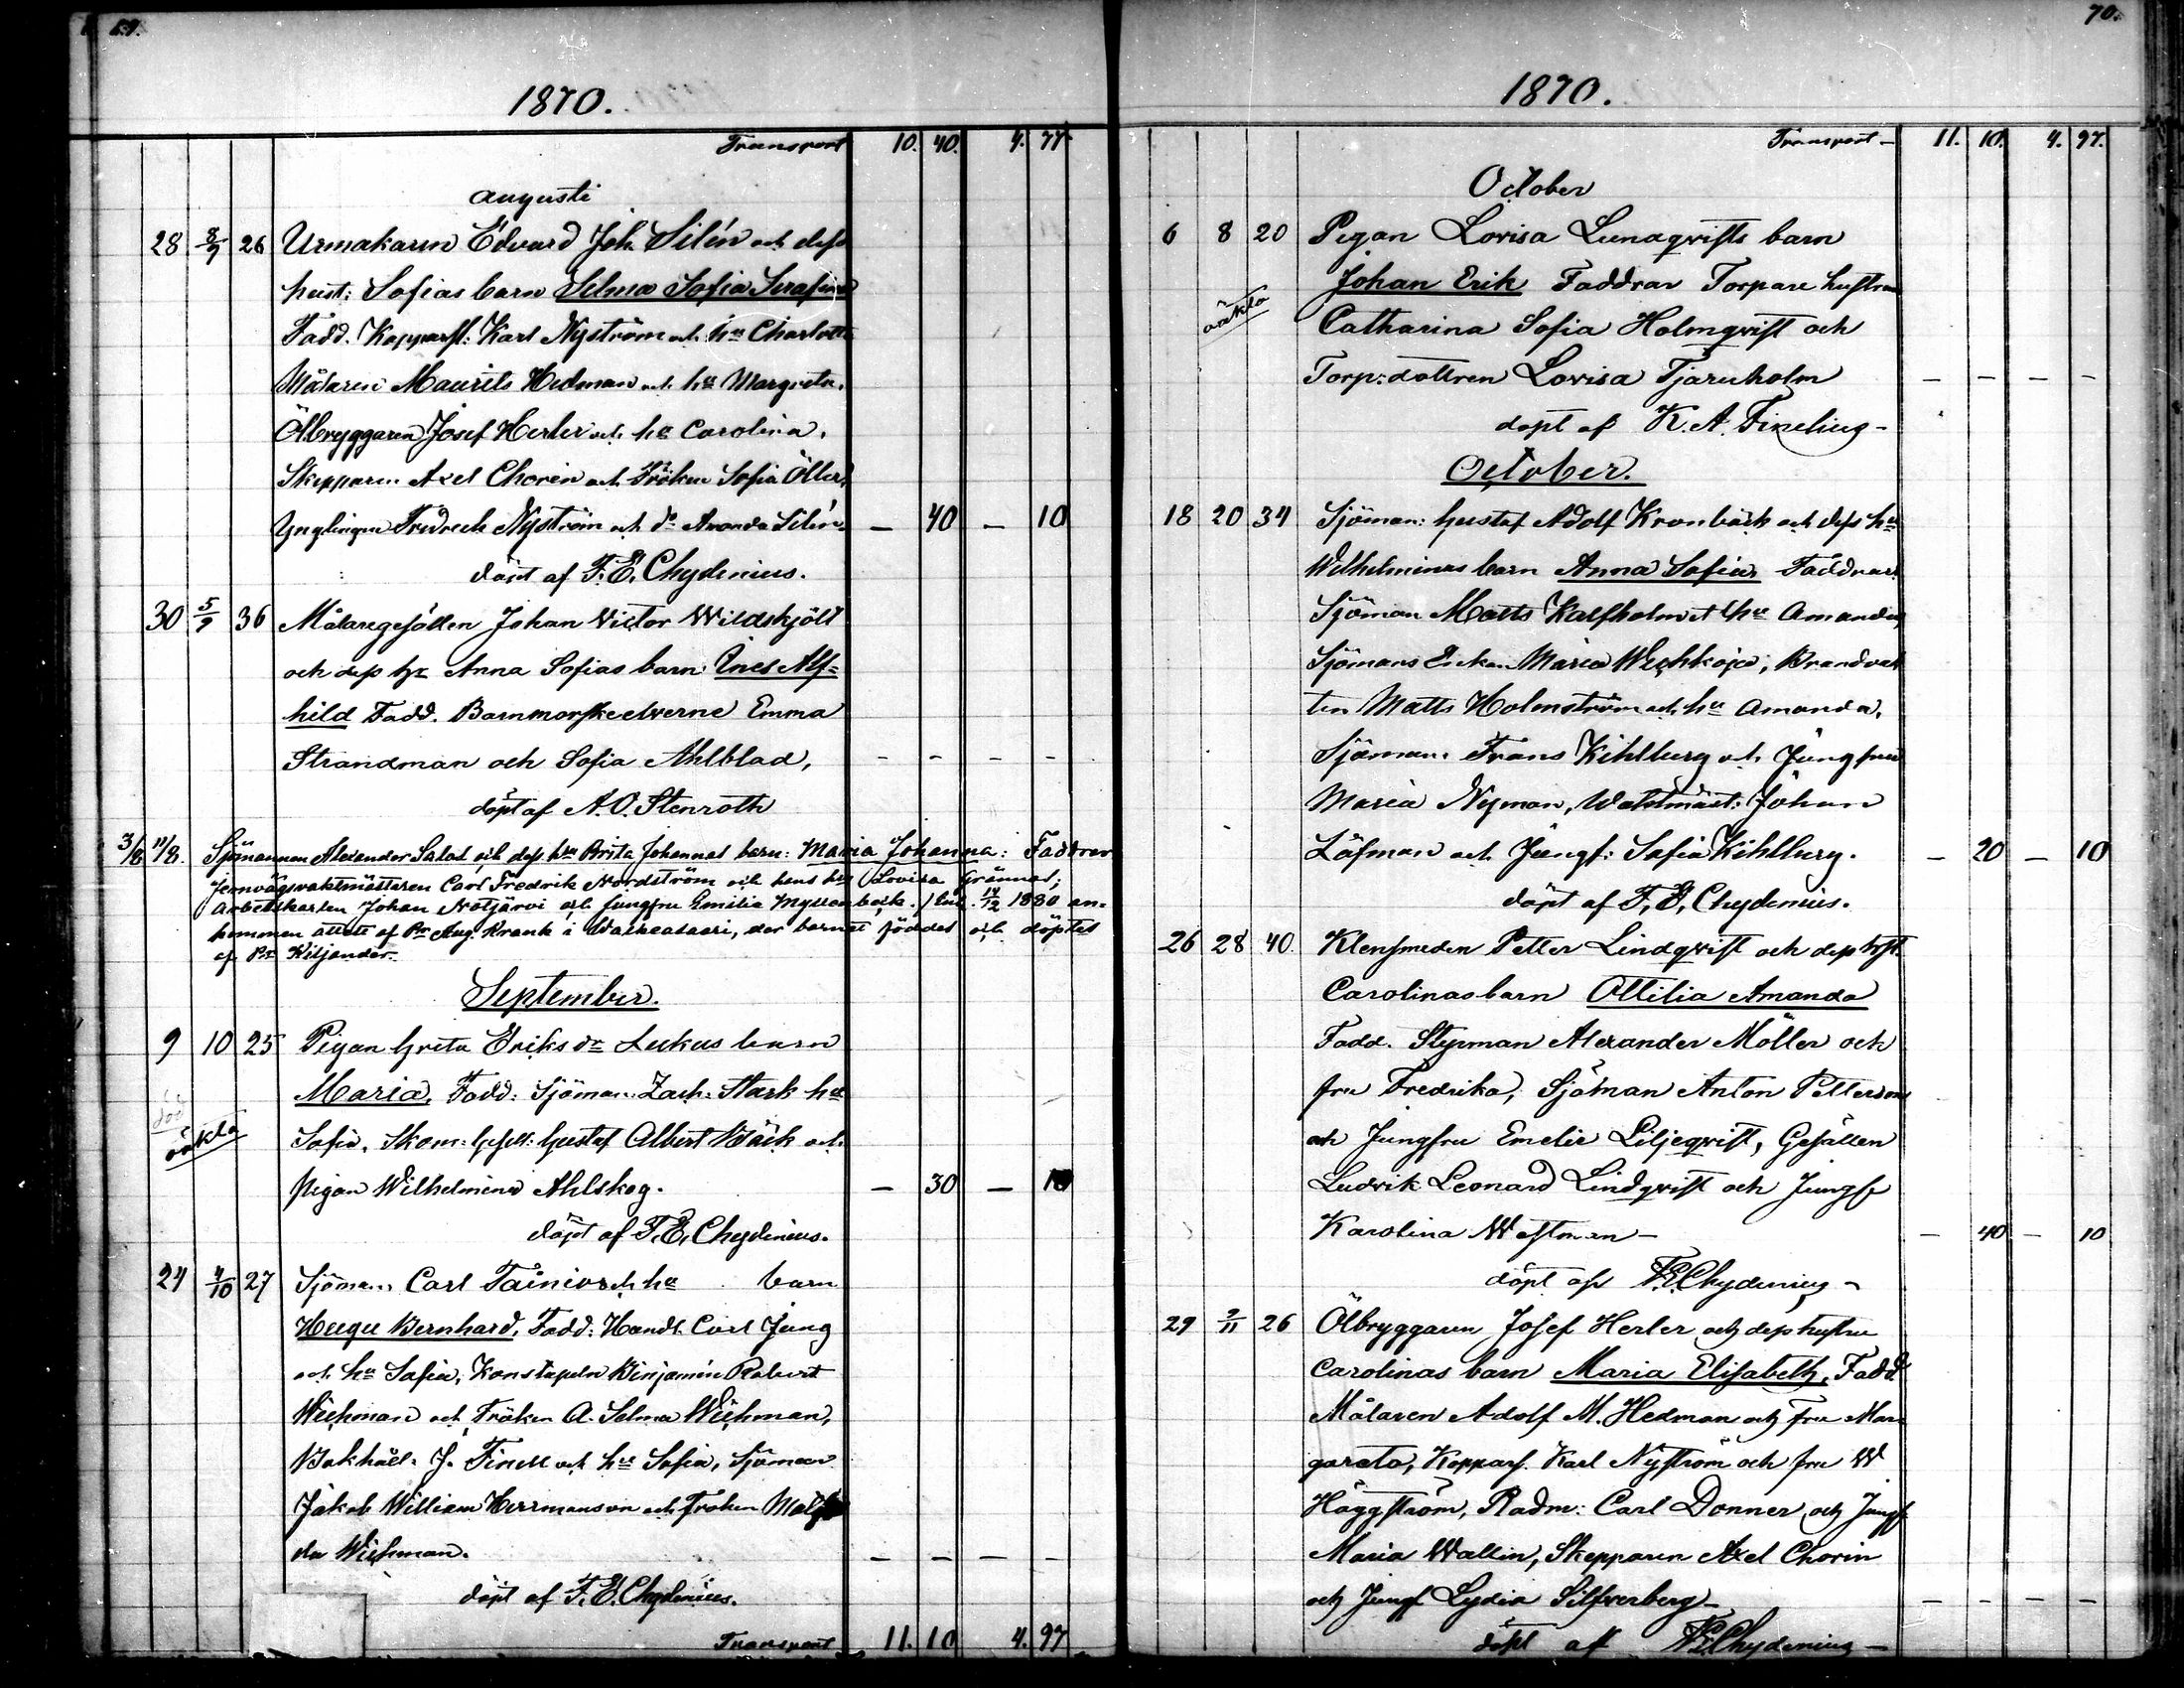 69.
1870.
Transport 10. 40. 4. 77.
Augusti
28 8/9 26 Urmakaren Edvard Joh. Silén och dess
hust: Sofias barn Selma Sofia Serafina
Fadd. Kopparsl: Karl Nyström och hu Charlotta
Målaren Maurits Hedman och hu Margreta,
Ölbryggaren Josef Herler och hu Carolina,
Skepparen Axel Chorin och Fröken Sofia Öller,
Ynglingen Fredrik Nyström och dr Amanda Silén. — 40 — 10
döpt af F. E. Chydenius.
30 5/9 36 Målaregesällen Johan Victor Wildskjölt
och dess hu Anna Sofias barn: Ines Alf-
hild Fadd. Barnmorskeelverne Emma
Strandman och Sofia Ahlblad, - - - -
döpt af A. O. Stenroth
3/8 11/8. Sjömannen Alexander Salos och dess hu Brita Johannas barn: Maria Johanna: Faddrar
Jernvägsvaktmästaren Carl Fredrik Nordström och hans hu Lovisa Grännas;
Arbetskarlen Johan Notjärvi och jungfru Emilia /Enl. 14/12 1880 an-
kommen attest af Pr Aug. Krank i Waskeasaari, der barnet föddes och döptes
af Pr Kiljander.
September.
9 10 25 Pigan Greta Eriksdr Lukus barn
död Maria, Fadd: Sjöman Zach: Stark hu
oäkta Sofia, Skom: Gesell: Gustaf Albert Bäck och
pigan Wilhelmina Ahlskog. — 30 — 10
döpt af F. E. Chydenius.
24 4/10 27 Sjöman Carl Tainio och hu barn
Hugu Bernhard, Fadd: Handl. Carl Jung
och hu Sofia, Konstapeln Binjamin Robert
Wichman och Fröken A. Selma Wichman,
Bokhåll. J. Finell och hu Sofia, Sjöman
Jakob William Herrmanson och Fröken Mathil
da Wichman. — — — —
döpt af F. E. Chydenius.
Transport 11. 10 4. 97
70.
1870.
Transport — 11. 10. 4. 97.
October
6 8 20 Pigan Lovisa Lunaqvists barn
Johan Erik Faddrar Torpare hustrun
oäkta Catharina Sofia Holmqvist och
Torp: dottren Lovisa Tjäruholm — — — —
döpt af K. A. Finelius —
October.
18 20 34 Sjöman: Gustaf Adolf Kronbäck och dess hu
Wilhelminas barn Anna Sofia, Faddrar
Sjöman Matts Kalfholm et hu Amanda,
Sjömans Enkan Maria Brandvak
ten Matts Holmström och hu Amanda,
Sjöman: Frans Kihlberg och Jungfru
Maria Nyman, Waktmäst: Johan
Löfman och Jungf: Sofia Kihlberg. — 20 — 10
döpt af F. E. Chydenius.
26 28 40. Klensmeden Petter Lindqvist och dess hust.
Carolinas barn Ottilia Amanda
Fadd. Styrman Alexander Möller och
fru Fredrika, Sjöman Anton Pettersons
och Jungfru Emelie Liljeqvist, Gesällen
Ludvik Leonard Lindqvist och Jungf
Karolina Westman — — 40 — 10
döpt af F. E. Chydenius —
29 9/11 26 Ölbryggaren Josef Herler och dess hustru
Carolinas barn Maria Elisabeth, Fadd
Målaren Adolf M. Hedman och fru Mar
gareta, Koppars. Karl Nyström och fru W
Häggström, Rådm: Carl Donner och Jungf
Maria Wallin, Skepparen Axel Chorin
och Jungf Lydia Silfverberg — — — — —
döpt af F. E. Chydenius —